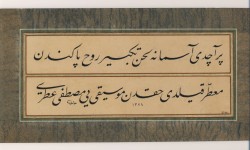 پر آچدی آسمانه لحن تکبیر روح پاکندن
معطر قیلدی حقدن موسیقی یی مصطفی عطری